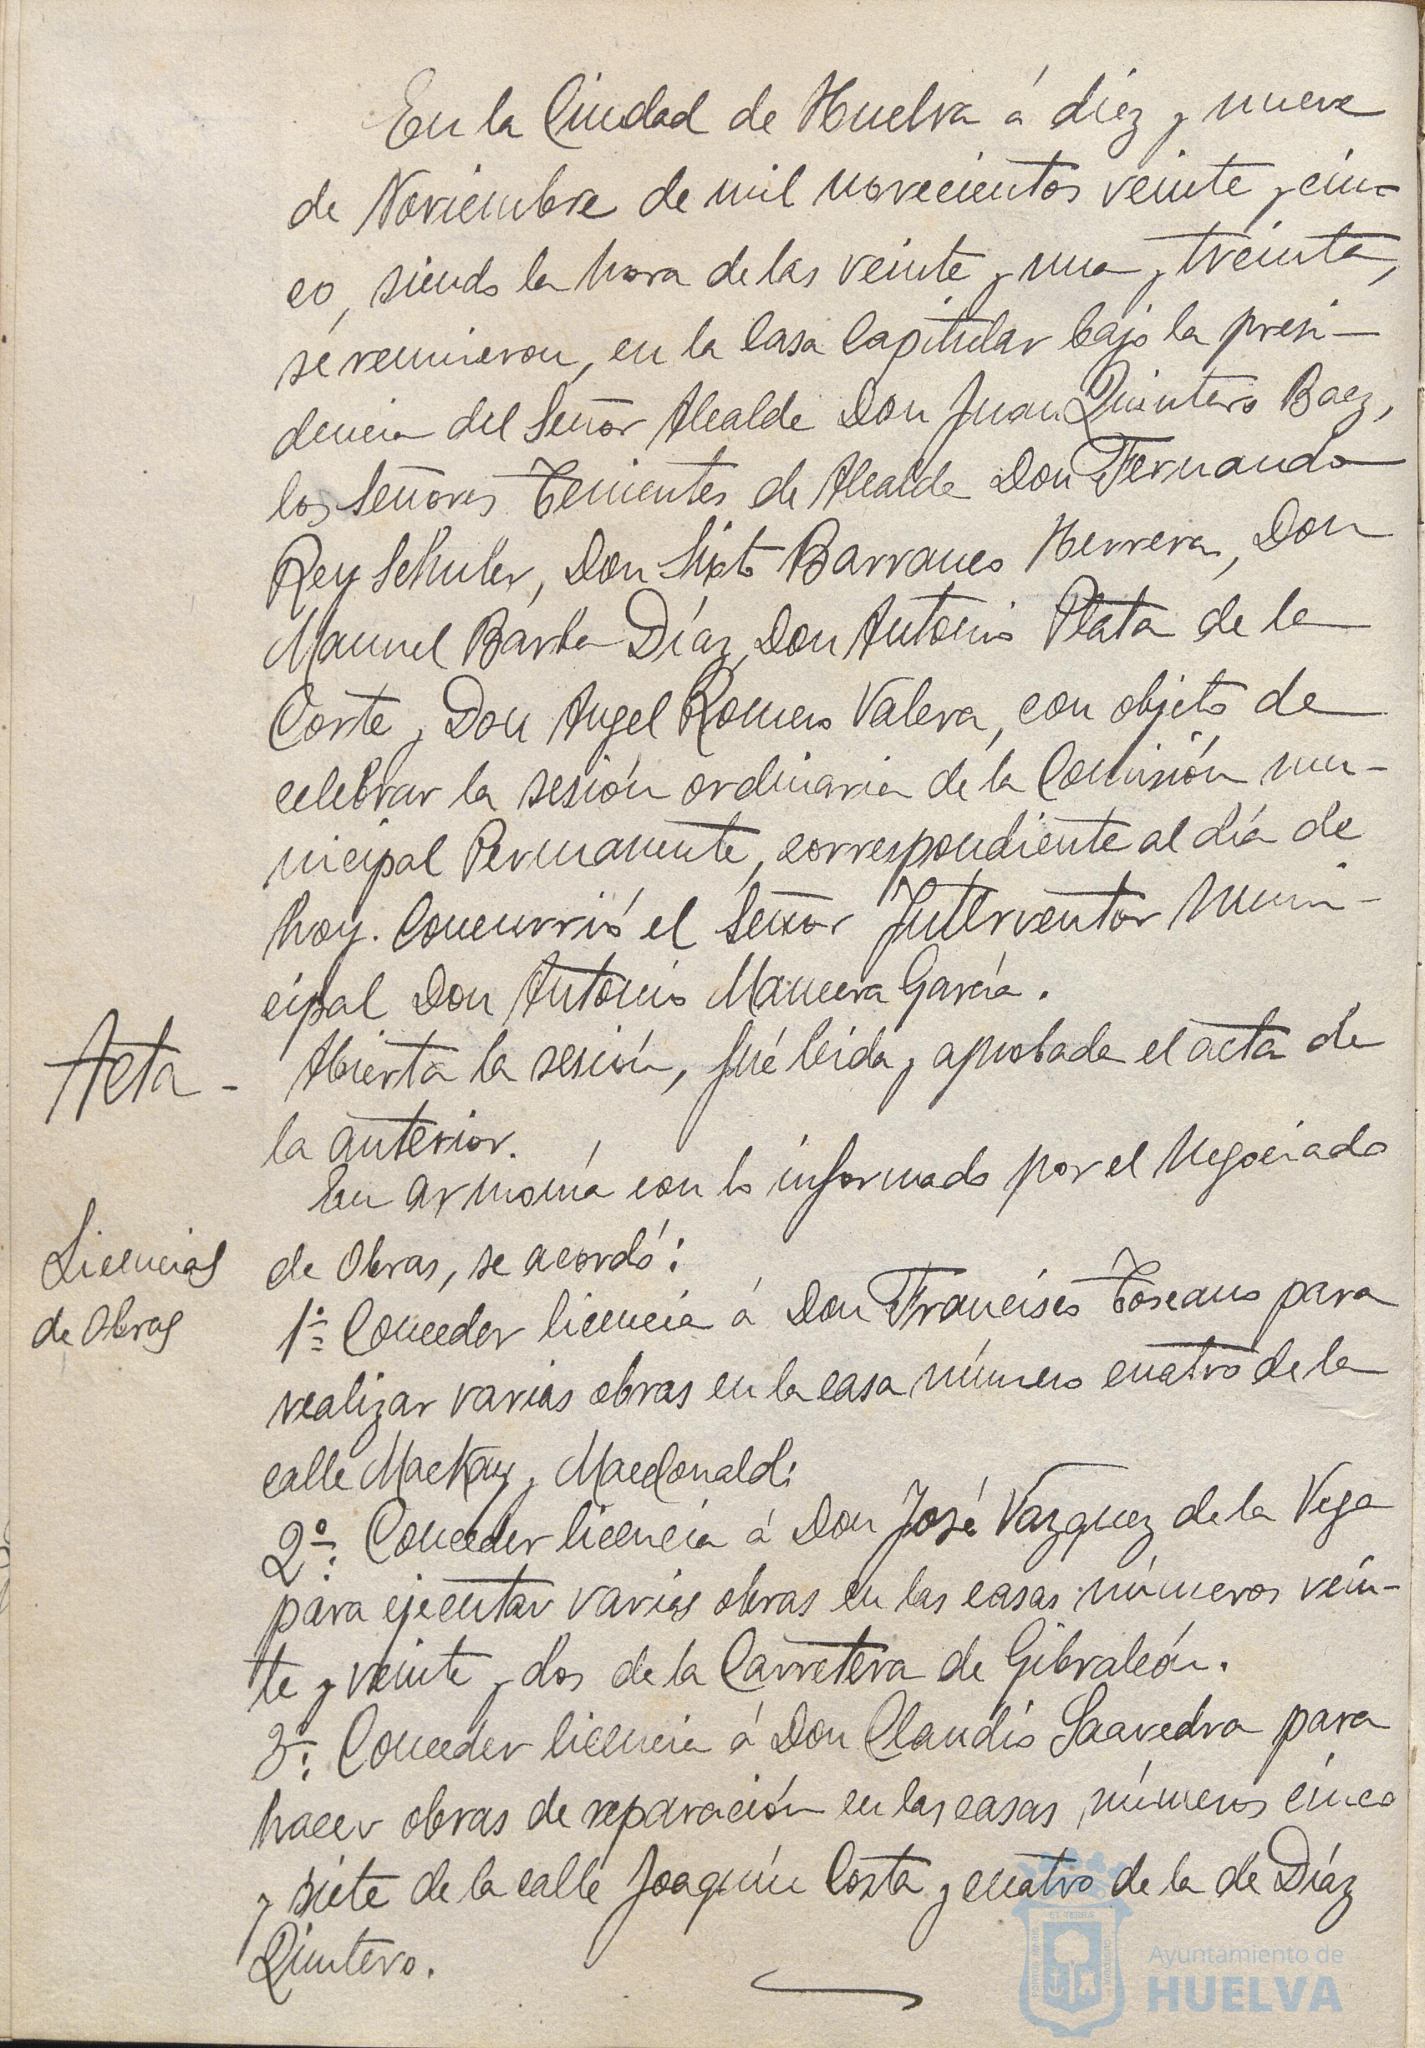 En la Ciudad de Huelva á diéz y nueve
de Noviembre de mil novecientos veinte y cin-
co, siendo la hora de las veinte y una y treinta,
se reunieron, en la Casa Capitular bajo la presi-
dencia del Señor Alcalde Don Juan Quintero Baez,
los Señores Tenientes de Alcalde Don Fernando
Rey Schuler, Don Sixto Barranco Herrera, Don
Manuel Barba Díaz, Don Antonio Plata de la
Corte y Don Angel Romero Valera, con objeto de
celebrar la sesión ordinaria de la Comisión mu-
nicipal Permanente, correspondiente al día de
hoy. Concurrió el Señor Interventor Muni-
cipal Don Antonio Mancera García.
Acta - Abierta la sesión, fué leida y aprobada el acta de
la anterior.
En armonía con lo informado por el Negociado
Licencias de Obras, se acordó:
de Obras 1º Conceder licencia á Don Francisco Toscano para
realizar varias obras en la casa número cuatro de la
calle Mackay y Macdonald:
2º: Conceder licencia á Don José Vazquez de la Vega
para ejecutar varias obras en las casas números vein-
te y veinte y dos de la Carretera de Gibraleón.
3º: Conceder licencia á Don Claudio Saavedra para
hacer obras de reparación en las casas, números cinco
y siete de la calle Joaquín Costa y cuatro de la de Díaz
Quintero.
Ayuntamiento de
HUELVA